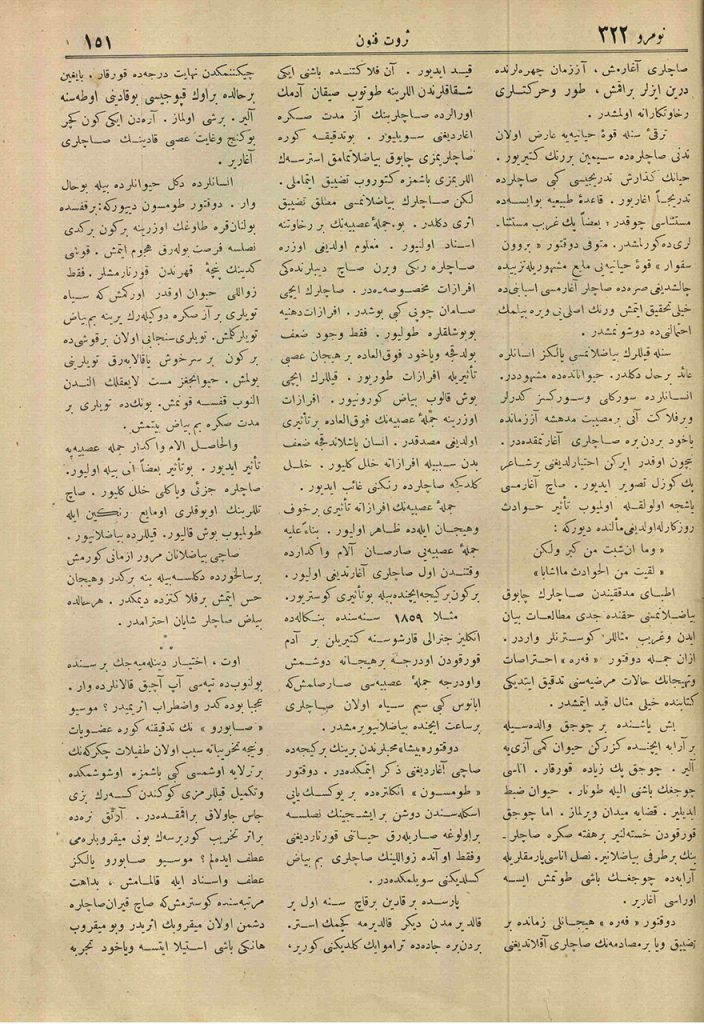 نومرو ٣٢٢
ثروت فنون
١٥١
صاچلری آغارمش ، آززمان چهره‌لرنده
درین ایزلر براقمش ، طور وحركتلری
رخاوتكارانه اولمشدر.
ترقئ سنله قوهٔ حیاتیه‌یه عارض اولان
تدنی صاچلرده سیمین بررنك كتیریور.
حیاتك كذارش تدریجیسی كبی صاچلرده
تدریجاً آغاریور. قاعدهٔ طبیعیه بوایسه‌ده
مستثناسی چوقدر ؛ بعضاً پك غریب مستثنا-
لری ده كورلمشدر. متوفی دوقتور « بروون
سقوار » قوهٔ حیاتیه‌یی مایع مشهوریله تزییده
چالشدیغی صره‌ده صاچلر آغارمسی اسبابنی ده
خیلی تحقیق ایتمش ورنك اصلی‌یی ویره بیلمك
احتمالنی ده دوشونمشدر.
سنله قیللرك بیاضلانمسی یالكز انسانلره
عائد برحال دكلدر. حیواناتده ده مشهوددر.
انسانلرده سوركلی وسوركسز كدرلر
وبرفلاكت آنی برمصیبت مدهشه آززمانده
یاخود بردن بره صاچلری آغارتمقده‌در.
بیچون اوقدر ایركن اختیارلدیغی برشاعر
پك كوزل تصویر ایدیور. صاچ آغارمسی
یاشجه اولولقله اولمیوب تأثیر حوادث
روزكارله اولدیغی مآلنده دیوركه :
« وما ان شبت من كبر ولكن
« لقیت من الحوادث مااشابا »
اطبای مدققیندن صاچلرك چابوق
بیاضلانمسنی حقنده جدی مطالعات بیان
ایدن وغریب مثاللر كوسترنلر واردر.
ازان جمله دوقتور « فه‌ره » احتراصات
وتهیجاتك حالات مرضیه‌سنی تدقیق ایتدیكی
كتابنده خیلی مثال قید ایتمشدر.
بش یاشنده بر چوجق والده‌سیله
برآرابه ایچنده كزركن حیوان كمی آزی‌یه
آلیر. چوجق پك زیاده قورقار. اناسی
چوجغك باشنی الیله طوتار. حیوان ضبط
ایدیلیر. قضایه میدان ویرلماز. اما چوجق
قورقودن خسته‌لنیر برهفته صكره صاچلر-
ینك برطرفی بیاضلانیر. نصل اناسی پارمقلریله
آرابه‌ده چوجغك باشی طوتمش ایسه
اوراسی آغاریر.
دوقتور « فه‌ره » هیجانلی زمانده بر
تضییق ویا بر مصادمه‌نك صاچلری آقلاندیغنی
قید ایدیور. آن فلاكتنده باشنی ایكی
شقاقلرندن اللرینه طوتوب صیقان آدمك
اورالرده صاچلرینك آز مدت صكره
اغاردیغنی سویلیور. بوتدقیقه كوره
صاچلریمزی چابوق بیاضلاتمامق استرسه‌ك
اللریمزی باشمزه كتوروب تضییق ایتماملی.
لكن صاچلرك بیاضلانمسی مطلق تضییق
اثری دكلدر. بوجملهٔ عصبیه‌نك بر رخاوتنه
اسناد اولنیور. معلوم اولدیغی اوزره
صاچلره رنكی ویرن صاچ دیبلرنده‌كی
افرازات مخصوصه‌در. صاچلرك ایچی
صامان چوپی كبی بوشدر. افرازات دهنیه
بوبوشلقلره طولیور. فقط وجود ضعف
بولدقجه ویاخود فوق‌العاده بر هیجان عصبی
تأثیریله افرازات طوریور. قیللرك ایچی
بوش قالوب بیاض كورونیور. افرازات
اوزرینه جملهٔ عصبیه‌نك فوق‌العاده برتأثیری
اولدیغی مصدقدر. انسان یاشلاندقجه ضعف
بدن سببیله افرازاته خلل كلیور. خلل
كلدكجه صاچلرده رنكنی غائب ایدیور.
جملهٔ عصبیه‌نك افرازاته تأثیری برخوف
وهیجان ایله‌ده ظاهر اولیور. بناءً علیه
جملهٔ عصبیه‌یی صارصان آلام واكدارده
وقتندن اول صاچلری آغارتدیغی اولیور.
بركون بركیجه ایچنده بیله بوتأثیری كوستریور.
مثلا ١٨٥٩ سنه‌سنده بنكاله‌ده
انكلیز جنرالی قارشوسنه كتیریلن بر آدم
قورقودن اودرجه برهیجانه دوشمش
واودرجه جملهٔ عصبیه‌سی صارصلمش‌كه
ابانوس كبی سیم سیاه اولان صاچلری
برساعت ایچنده بیاضلانیویرمشدر.
دوقتور بیشا، محبلرندن برینك بركیجه‌ده
صاچی آغاردیغنی ذكر ایتمكده‌در. دوقتور
« طومسون » انكلتره‌ده بر یوكسك یاپی
اسكله‌سندن دوشن برایشجینك نصلسه
براولوغه صاریله‌رق حیاتنی قورتاردیغنی
وفقط او آنده زواللینك صاچلری بم بیاض
كسلدیكنی سویلمكده‌در.
پارسده بر قادین برقاچ سنه اول بر
قالدیرمدن دیكر قالدیرمه كچمك استر.
بردن بره جاده‌ده تراموایك كلدیكنی كوریر،
چیكنه‌نمكدن نهایت درجه‌ده قورقار. بایغین
برحالده براوك قپوجیسی بوقادینی اوطه‌سنه
آلیر. برشی اولماز. آره‌دن ایكی كون كچر
بوكنج وغایت عصبی قادینك صاچلری
آغاریر.
انسانلرده دكل حیوانلرده بیله بوحال
وار. دوقتور طومسون دیوركه : برقفسده
بولنان قره طاوغك اوزرینه بركون بركدی
نصلسه فرصت بوله‌رق هجوم ایتمش. قوشی
كدینك پنچهٔ قهرندن قورتارمشلر. فقط
زواللی حیوان اوقدر اوركمش‌كه سیاه
تویلری بر آز صكره دوكیله‌رك یرینه بم بیاض
تویلر كلمش. تویلری سنجابی اولان برقوشی ده
بركون بر سرخوش یاقالایه‌رق تویلرینی
یولمش. حیوانجغز مست لایعقلك الندن
آلنوب قفسه قونمش. بونك‌ده تویلری بر
مدت صكره بم بیاض بیتمش.
والحاصل آلام واكدار جمله عصبیه‌یه
تأثیر ایدیور. بوتأثیر بعضاً آنی بیله اولیور.
صاچلره جزئی ویاكلی خلل كلیور. صاچ
تللرینك اوبوقلری اومایع رنكین ایله
طولمیوب بوش قالیور. قیللرده بیاضلانیور.
صاچی بیاضلانان مرور ازمانی كورمش
برسالخورده دكلسه‌بیله ینه بركدر وهیجان
حس ایتمش برفلاكتزده دیمكدر. هرحالده
بیاض صاچلر شایان احترامدر.
* * *
اوت ، اختیار دینله‌میه‌جك برسنده
بولنوب‌ده تپه‌سی آپ آچیق قالانلرده وار.
عجبا بوده‌كدر واضطراب اثریمیدر ؟ موسیو
« صابورو » نك تدقیقنه كوره عضویات
ونیجه تخریباته سبب اولان طفیلات چكرگه‌نك
برتارلایه اوشمسی كبی باشمزه اوشوشمكده
وتكمیل قیللرمزی كوكندن كسه‌رك بزی
جاس جاولاق براقمقده‌در. آرتق نره‌ده
براثر تخریب كوریرسه‌ك بونی میقروبلره‌می
عطف ایده‌لم ؟ موسیو صابورو یالكز
عطف واسناد ایله قالمامش ، بداهت
مرتبه‌سنده كوسترمش‌كه صاچ قیران صاچلره
دشمن اولان میقروبك اثریدر وبومیقروب
هانكی باشی استیلا ایتسه ویاخود تجربه